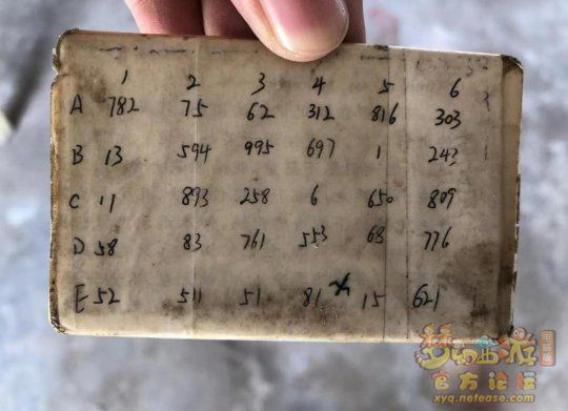 1 2 3 4 5 6
A 782 75 62 312 816 303
B 13 594 995 697 1 242
C 11 893 258 6 650 809
D 58 83 761 553 68 776
E 52 511 51 81 15 621
梦幻西游
官方论坛
xyq.netease.com